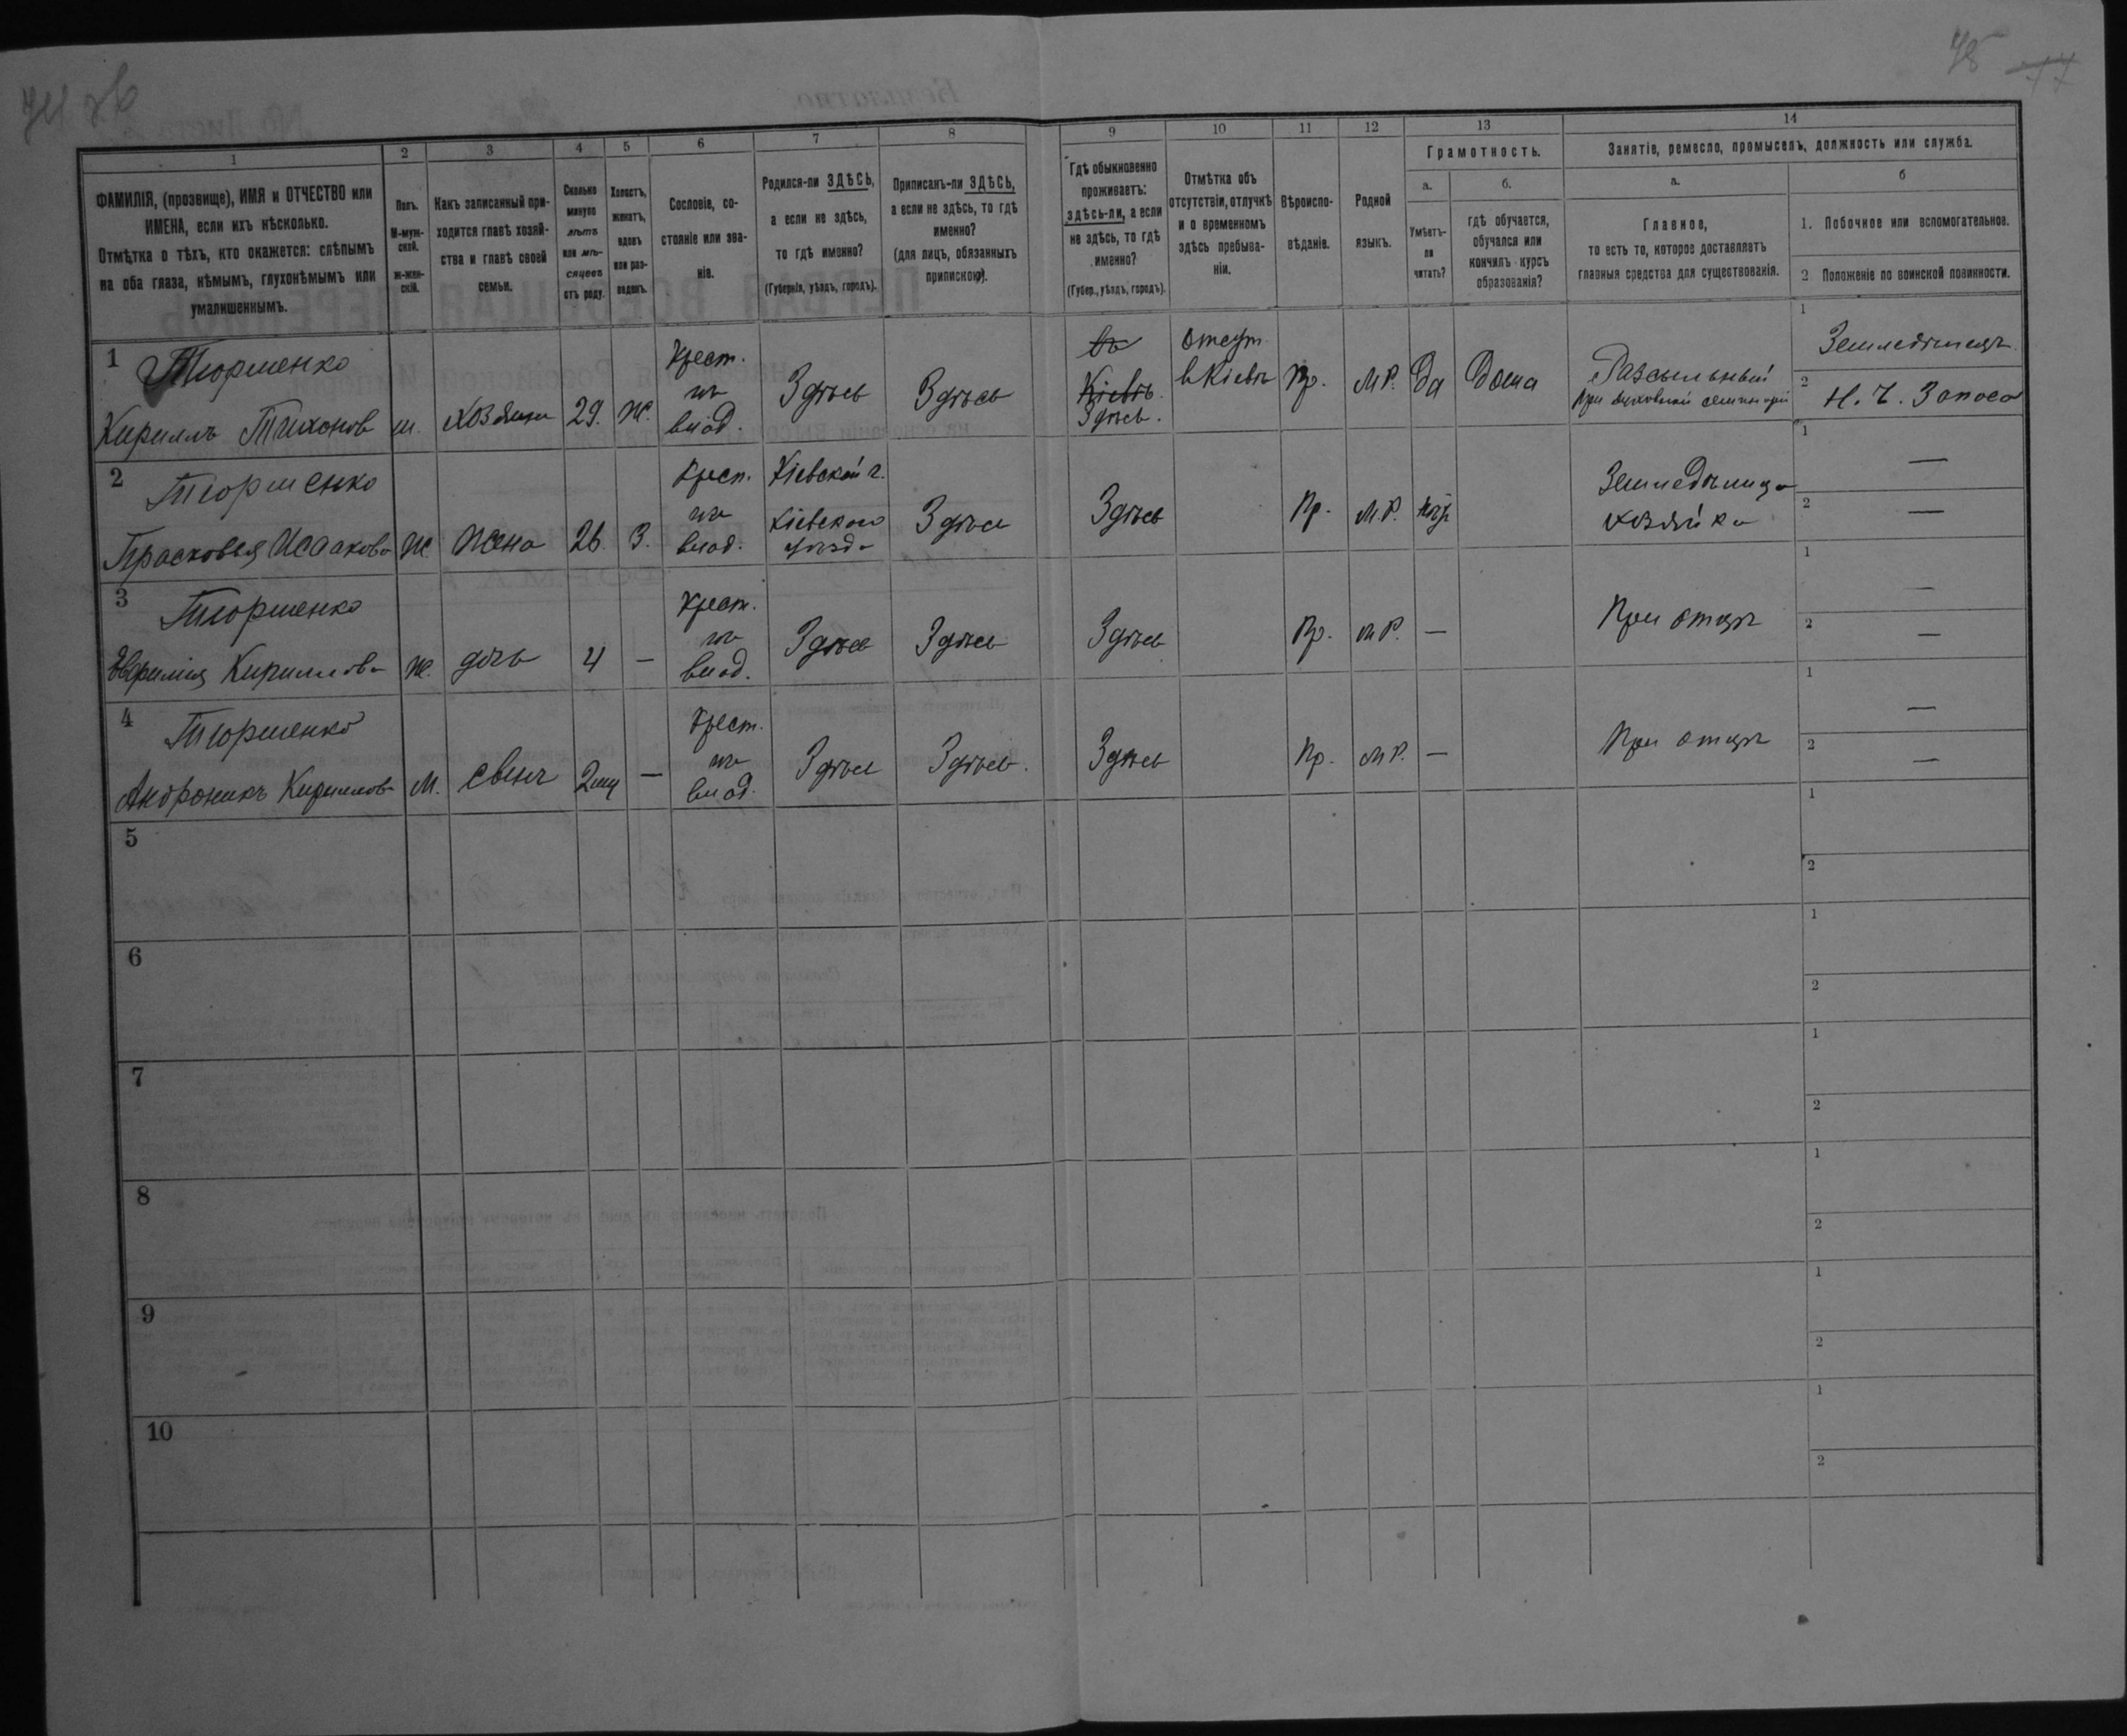 74 об
75
77
1
2
3
4
5
6
7
8
9
10
11
12
13
14
ФАМИЛІЯ, (прозвище), ИМЯ и ОТЧЕСТВО или
ИМЕНА, если ихъ нѣсколько.
Отмѣтка о тѣхъ, кто окажется: слѣпымъ
на оба глаза, нѣмымъ, глухонѣмымъ или
умалишеннымъ.
Полъ.
М-муж-
ской.
ж-жен-
скій.
Какъ записанный при-
ходится главѣ хозяй-
ства и главѣ своей
семьи.
Сколько
минуло
лѣтъ
или мѣ-
сяцевъ
отъ роду.
Холостъ,
женатъ,
вдовъ
или раз-
веденъ.
Сословіе, со-
стояніе или зва-
ніе.
Родился-ли ЗДѢСЬ,
а если не здѣсь,
то гдѣ именно?
(Губернія, уѣздъ, городъ).
Приписанъ-ли ЗДѢСЬ,
а если не здѣсь, то гдѣ
именно?
(для лицъ, обязанныхъ
припискою).
Гдѣ обыкновенно
проживаетъ:
здѣсь-ли, а если
не здѣсь, то гдѣ
именно?
(Губер., уѣздъ, городъ).
Отмѣтка объ
отсутствіи, отлучкѣ
и о временномъ
здѣсь пребыва-
ніи.
Вѣроиспо-
вѣданіе.
Родной
языкъ.
Грамотность.
а.
Умѣетъ-
ли
читать?
б.
гдѣ обучается,
обучался или
кончилъ курсъ
образованія?
Занятіе, ремесло, промыселъ, должность или служба.
а.
Главное,
то есть то, которое доставляетъ
главныя средства для существованія.
б
1. Побочное или вспомогательное.
2 Положеніе по воинской повинности.
1
Тюрменко
Кириллъ Тихонов
м.
хозяинъ
29.
ж.
Крест.
из
влад.
Здѣсь
Здѣсь
въ
Кіевѣ.
Здѣсь.
Отсут.
в Кіевѣ
Пр.
М.Р.
Да
Дома
Разсыльный
при духовной семинаріи
1
Земледѣлецъ
2
Н. Ч. Запаса
2
Тюрменко
Прасковья Исаакова
Ж
Жена
26
З.
Крест.
из
влад.
Кіевской г.
Кіевскаго
уѣзда
Здѣсь
Здѣсь
Пр.
М.Р.
нѣт
Земледѣлица
хозяйка
1
—
2
—
3
Тюрменко
Евфимія Кириллова
Ж.
дочь
4
—
Крест.
из
влад.
Здѣсь
Здѣсь
Здѣсь
Пр.
М.Р.
—
При отцѣ
1
—
2
—
4
Тюрменко
Андроникъ Кириллов
М.
сынъ
2мц
—
Крест.
из
влад.
Здѣсь
Здѣсь.
Здѣсь
Пр.
М.Р.
—
При отцѣ
1
—
2
—
5
1
2
6
1
2
7
1
2
8
1
2
9
1
2
10
1
2